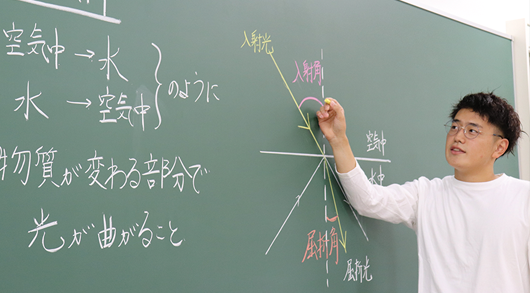 空気中→水
水→空気中
のように
物質が変わる部分で
光が曲がること
入射光
入射角
空気中
水中
屈折角
屈折光